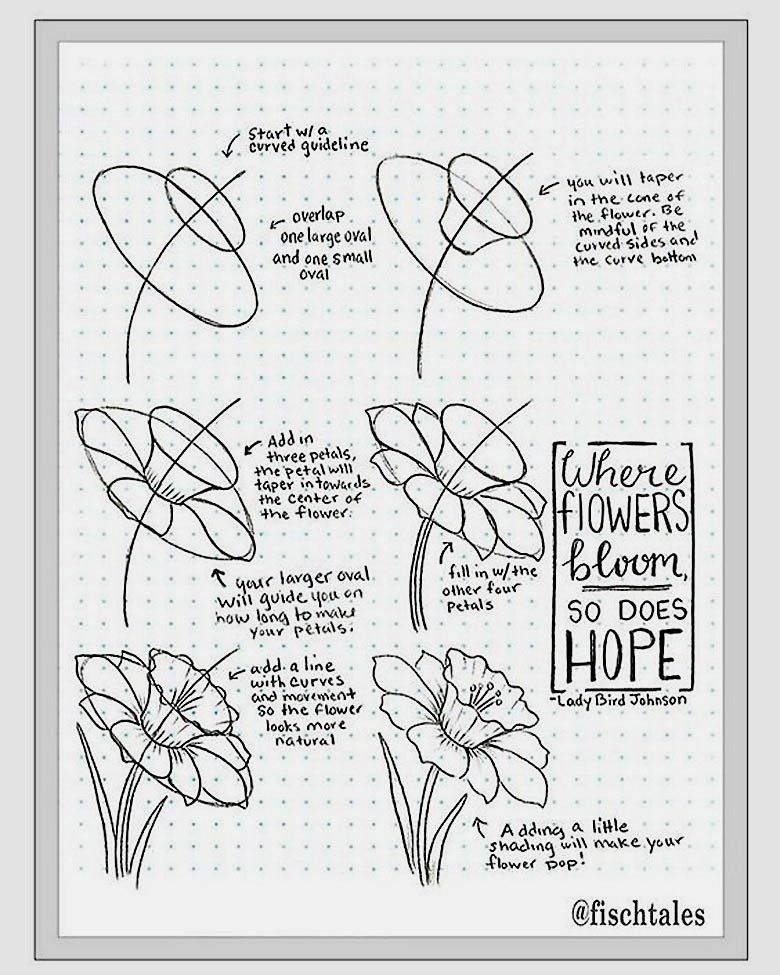 Start w/ a
curved guideline
overlap
one large oval
and one small
oval
you will taper
in the cone of
the flower. Be
mindful of the
curved sides and
the curve bottom
Add in
three petals,
the petal will
taper in towards
the center of
the flower.
your larger oval
will guide you on
how long to make
your petals.
fill in w/ the
other four
petals
Where
flOWERS
bloom,
SO DOES
HOPE
-Lady Bird Johnson
add a line
with curves
and movement
so the flower
looks more
natural
Adding a little
shading will make your
flower pop!
@fischtales